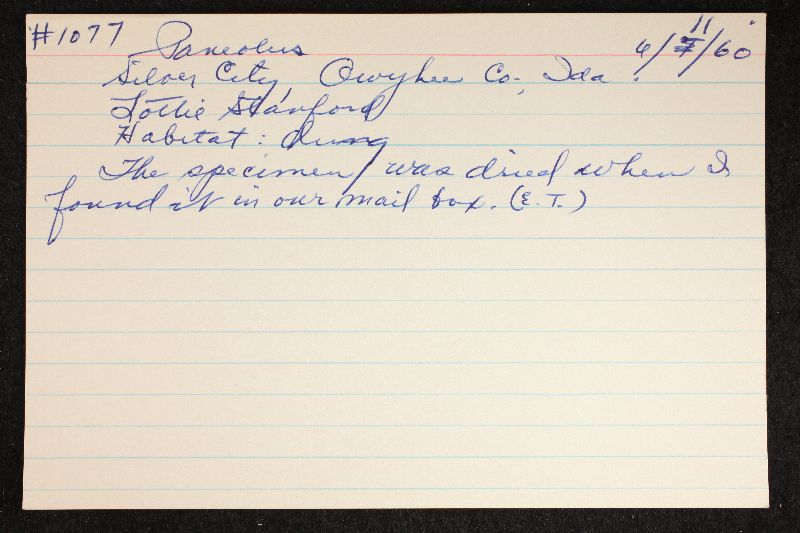 #1077 Paneolus 6/11/60
Silver City, Owyhee Co., Ida.
Lottie Stanford
Habitat: dung
The specimen was dried when I
found it in our mail box. (E.T.)